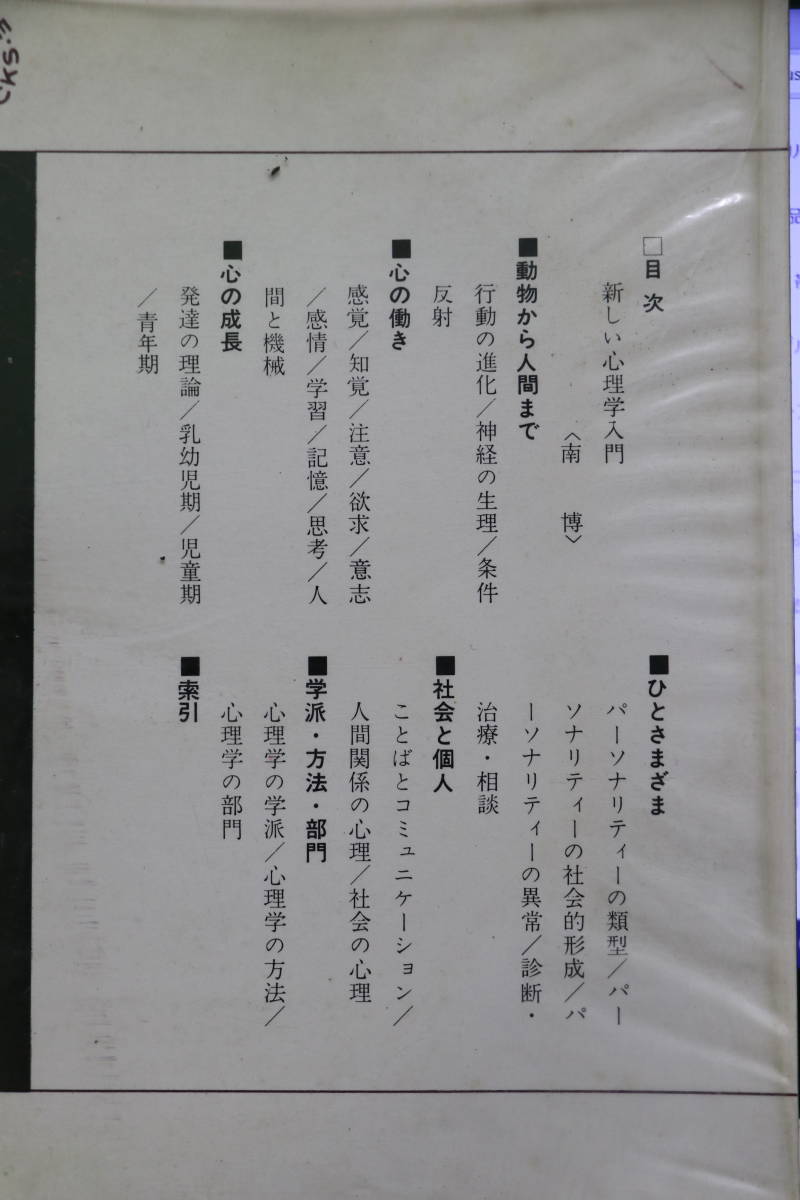 □目次
新しい心理学入門
〈南　博〉
■動物から人間まで
行動の進化/神経の生理/条件
反射
■心の働き
感覚/知覚/注意/欲求/意志
/感情/学習/記憶/思考/人
間と機械
■心の成長
発達の理論/乳幼児期/児童期
/青年期
■ひとさまざま
パーソナリティーの類型/パー
ソナリティーの社会的形成/パ
ーソナリティーの異常/診断・
治療・相談
■社会と個人
ことばとコミュニケーション/
人間関係の心理/社会の心理
■学派・方法・部門
心理学の学派/心理学の方法/
心理学の部門
■索引